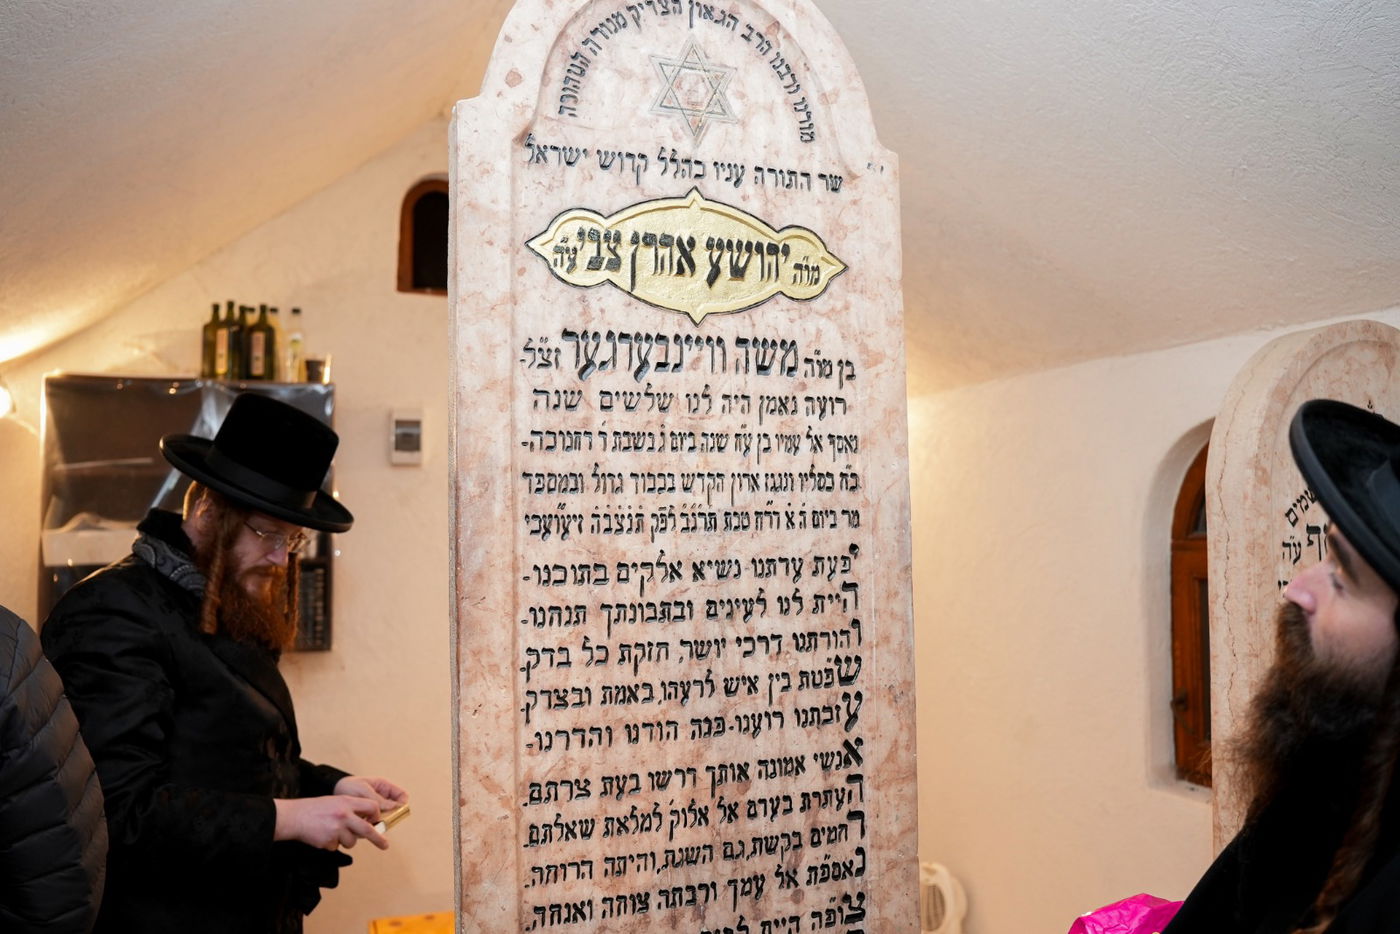 מורנו ורבנו הרב הגאון הצדיק מנורה הטהורה
שר התורה עניו כהלל קדוש ישראל
מו"ה יהושע אהרן צבי ע"ה
בן מו"ה משה וויינבערגער זצ"ל
רועה נאמן היה לנו שלשים שנה
נאסף אל עמיו בן ע"ח שנה ביום ג' בשבת ו' דחנוכה
כ"ח בסליו ונגנז ארון הקדש בכבוד גדול ובמספד
מר ביום ה' א' דר"ח טבת תרנ"ב לפ"ק תנצב"ה זיע"ועכ"י
יפעת עדתנו נשיא אלקים בתוכנו
היית לנו לעינים ובתבונתך תנחנו
והורתנו דרכי יושר, חזקת כל בדק
שפטת בין איש לרעהו, באמת ובצדק
עזבתנו רוענו פנה הודנו והדרנו
אנשי אמונה אותך דרשו בעת צרתם
העתרת בעדם אל אלוק' למלאת שאלתם
רחמים בקשת, גם השגת, והיתה הרוחה
נאספת אל עמך ורבתה צוחה ואנחה
צופה היית לבית
שמים
ע"ה